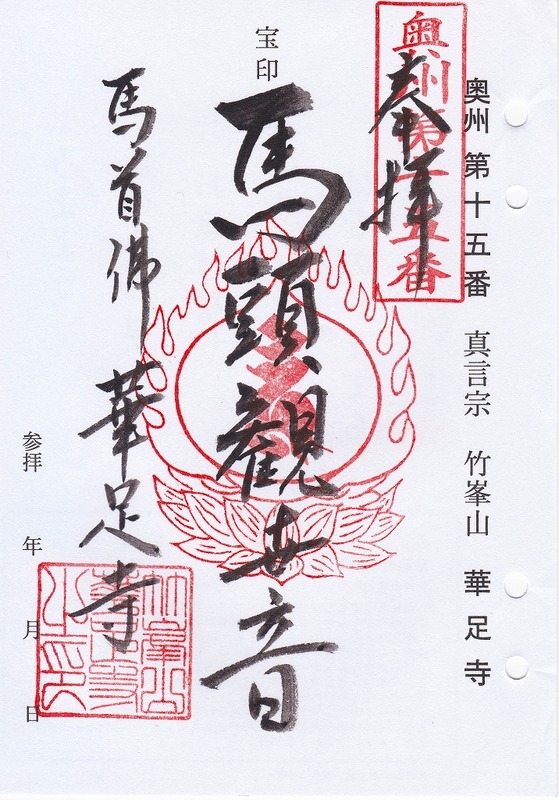 奥州 第十五番 真言宗 竹峯山 華足寺
奥州第十五番
奉拝
宝印
馬頭観世音
馬首佛 華足寺
参拝 年 月 日